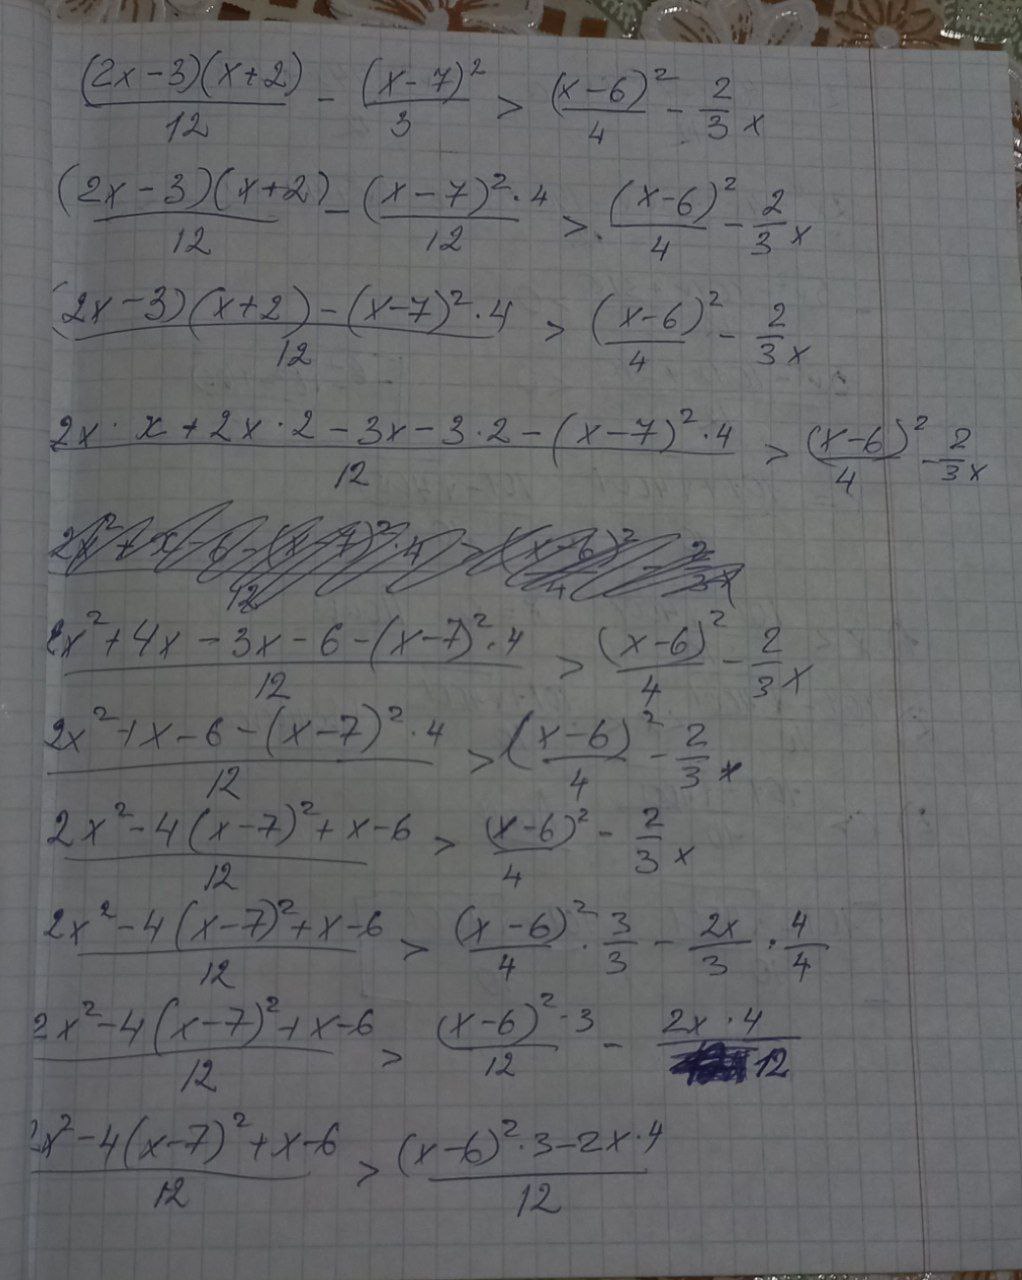 (2x-3)(x+2)/12 - (x-7)²/3 > (x-6)²/4 - 2/3 x
(2x-3)(x+2)/12 - (x-7)²·4/12 > (x-6)²/4 - 2/3 x
(2x-3)(x+2)-(x-7)²·4/12 > (x-6)²/4 - 2/3 x
2x·x+2x·2-3x-3·2-(x-7)²·4/12 > (x-6)²/4 - 2/3 x
2x²+x-6-(x-7)²·4/12 > (x-6)²/4 - 2/3 x
2x²+4x-3x-6-(x-7)²·4/12 > (x-6)²/4 - 2/3 x
2x²+x-6-(x-7)²·4/12 > (x-6)²/4 - 2/3 x
2x²-4(x-7)²+x-6/12 > (x-6)²/4 - 2/3 x
2x²-4(x-7)²+x-6/12 > (x-6)²/4 · 3/3 - 2x/3 · 4/4
2x²-4(x-7)²+x-6/12 > (x-6)²·3/12 - 2x·4/12
2x²-4(x-7)²+x-6/12 > (x-6)²·3-2x·4/12